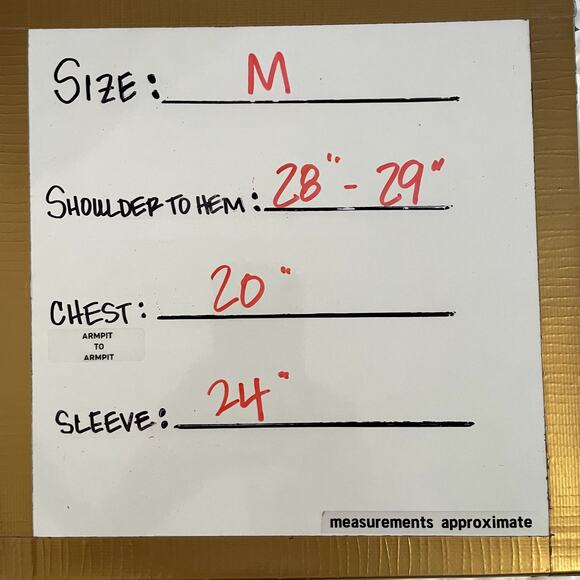 SIZE: M
SHOULDER TO HEM: 28" - 29"
CHEST: 20"
ARMPIT
TO
ARMPIT
SLEEVE: 24"
measurements approximate